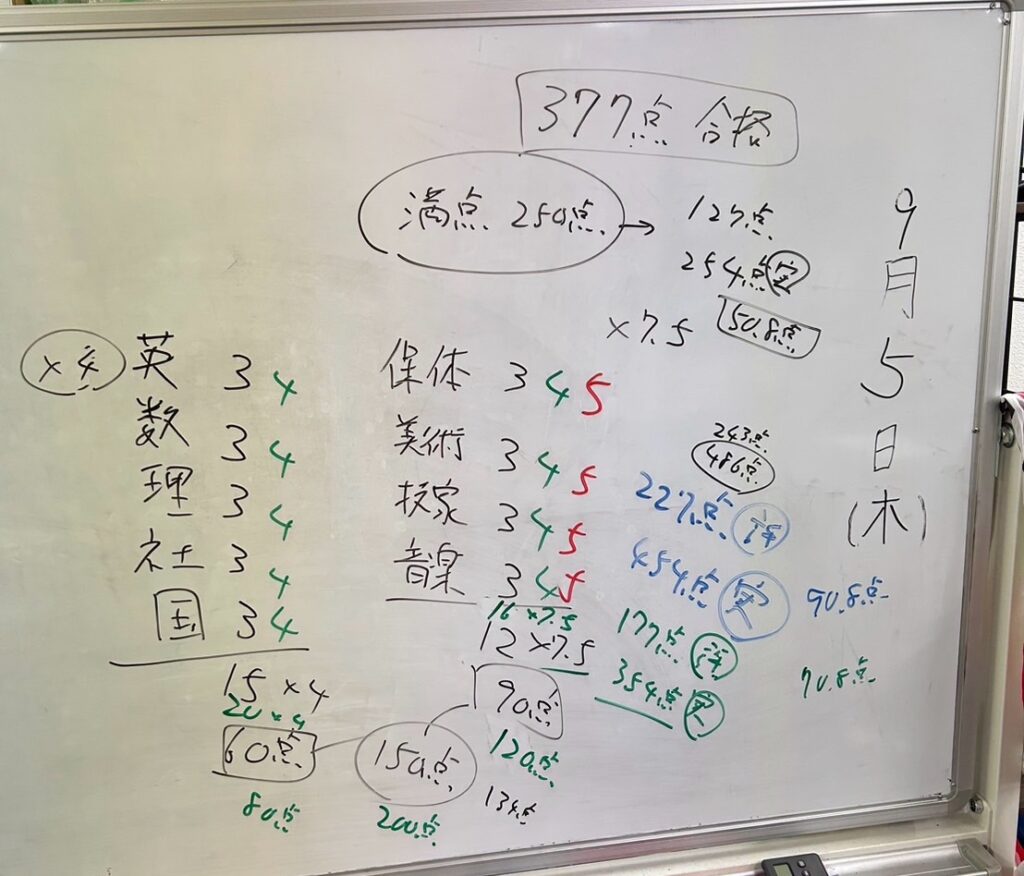 377点 合格
満点 250点 → 127点
254点 実
50.8点
×7.5
9月5日(木)
×4
英 3 4
数 3 4
理 3 4
社 3 4
国 3 4
15×4
20×4
60点
80点
保体 3 4 5
美術 3 4 5
技家 3 4 5
音楽 3 4 5
16×7.5
12×7.5
90点
150点
120点
200点
134点
243点
486点
227点 評
454点 実 90.8点
177点 評
354点 実 70.8点